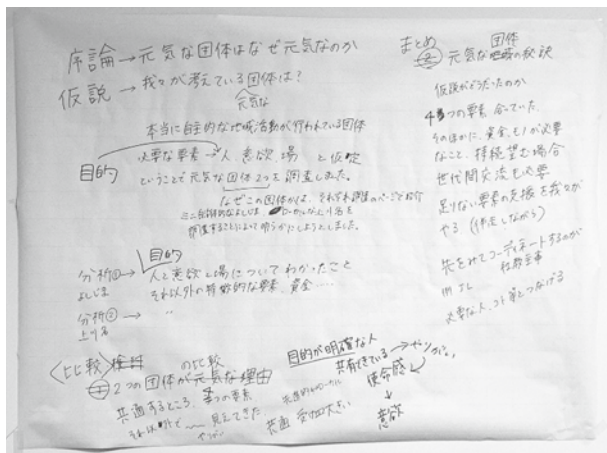 序論→元気な団体はなぜ元気なのか
仮説→我々が考えている団体は?
元気な
本当に自主的な地域活動が行われている団体
目的
必要な要素→人、意欲、場 と仮定
ということで元気な団体2つを調査しました。
なぜこの団体かは、それぞれ調査のページで紹介
調査することによって明らかにしようとしました。
目的
分析①→人と意欲と場についてわかったこと
よしじま
それ以外の特徴的な要素、資金……
分析②→ 〃
上川名
〈比較〉検討
の比較
①2つの団体が元気な理由
共通するところ、4つの要素
それ以外で〜見えてきた
目的が明確な人
共有できている→やりがい
使命感
↓
意欲
共通 受け口大きい
まとめ
団体
② 元気な地域の秘訣
仮説がどうだったのか
4つの要素 合っていた。
そのほかに、資金、モノが必要
なこと、持続望む場合
世代間交流も必要
足りない要素の支援を我々が
やる(伴走しながら)
先をみてコーディネートするのが
社教主事
必要な人、コト 等とつなげる